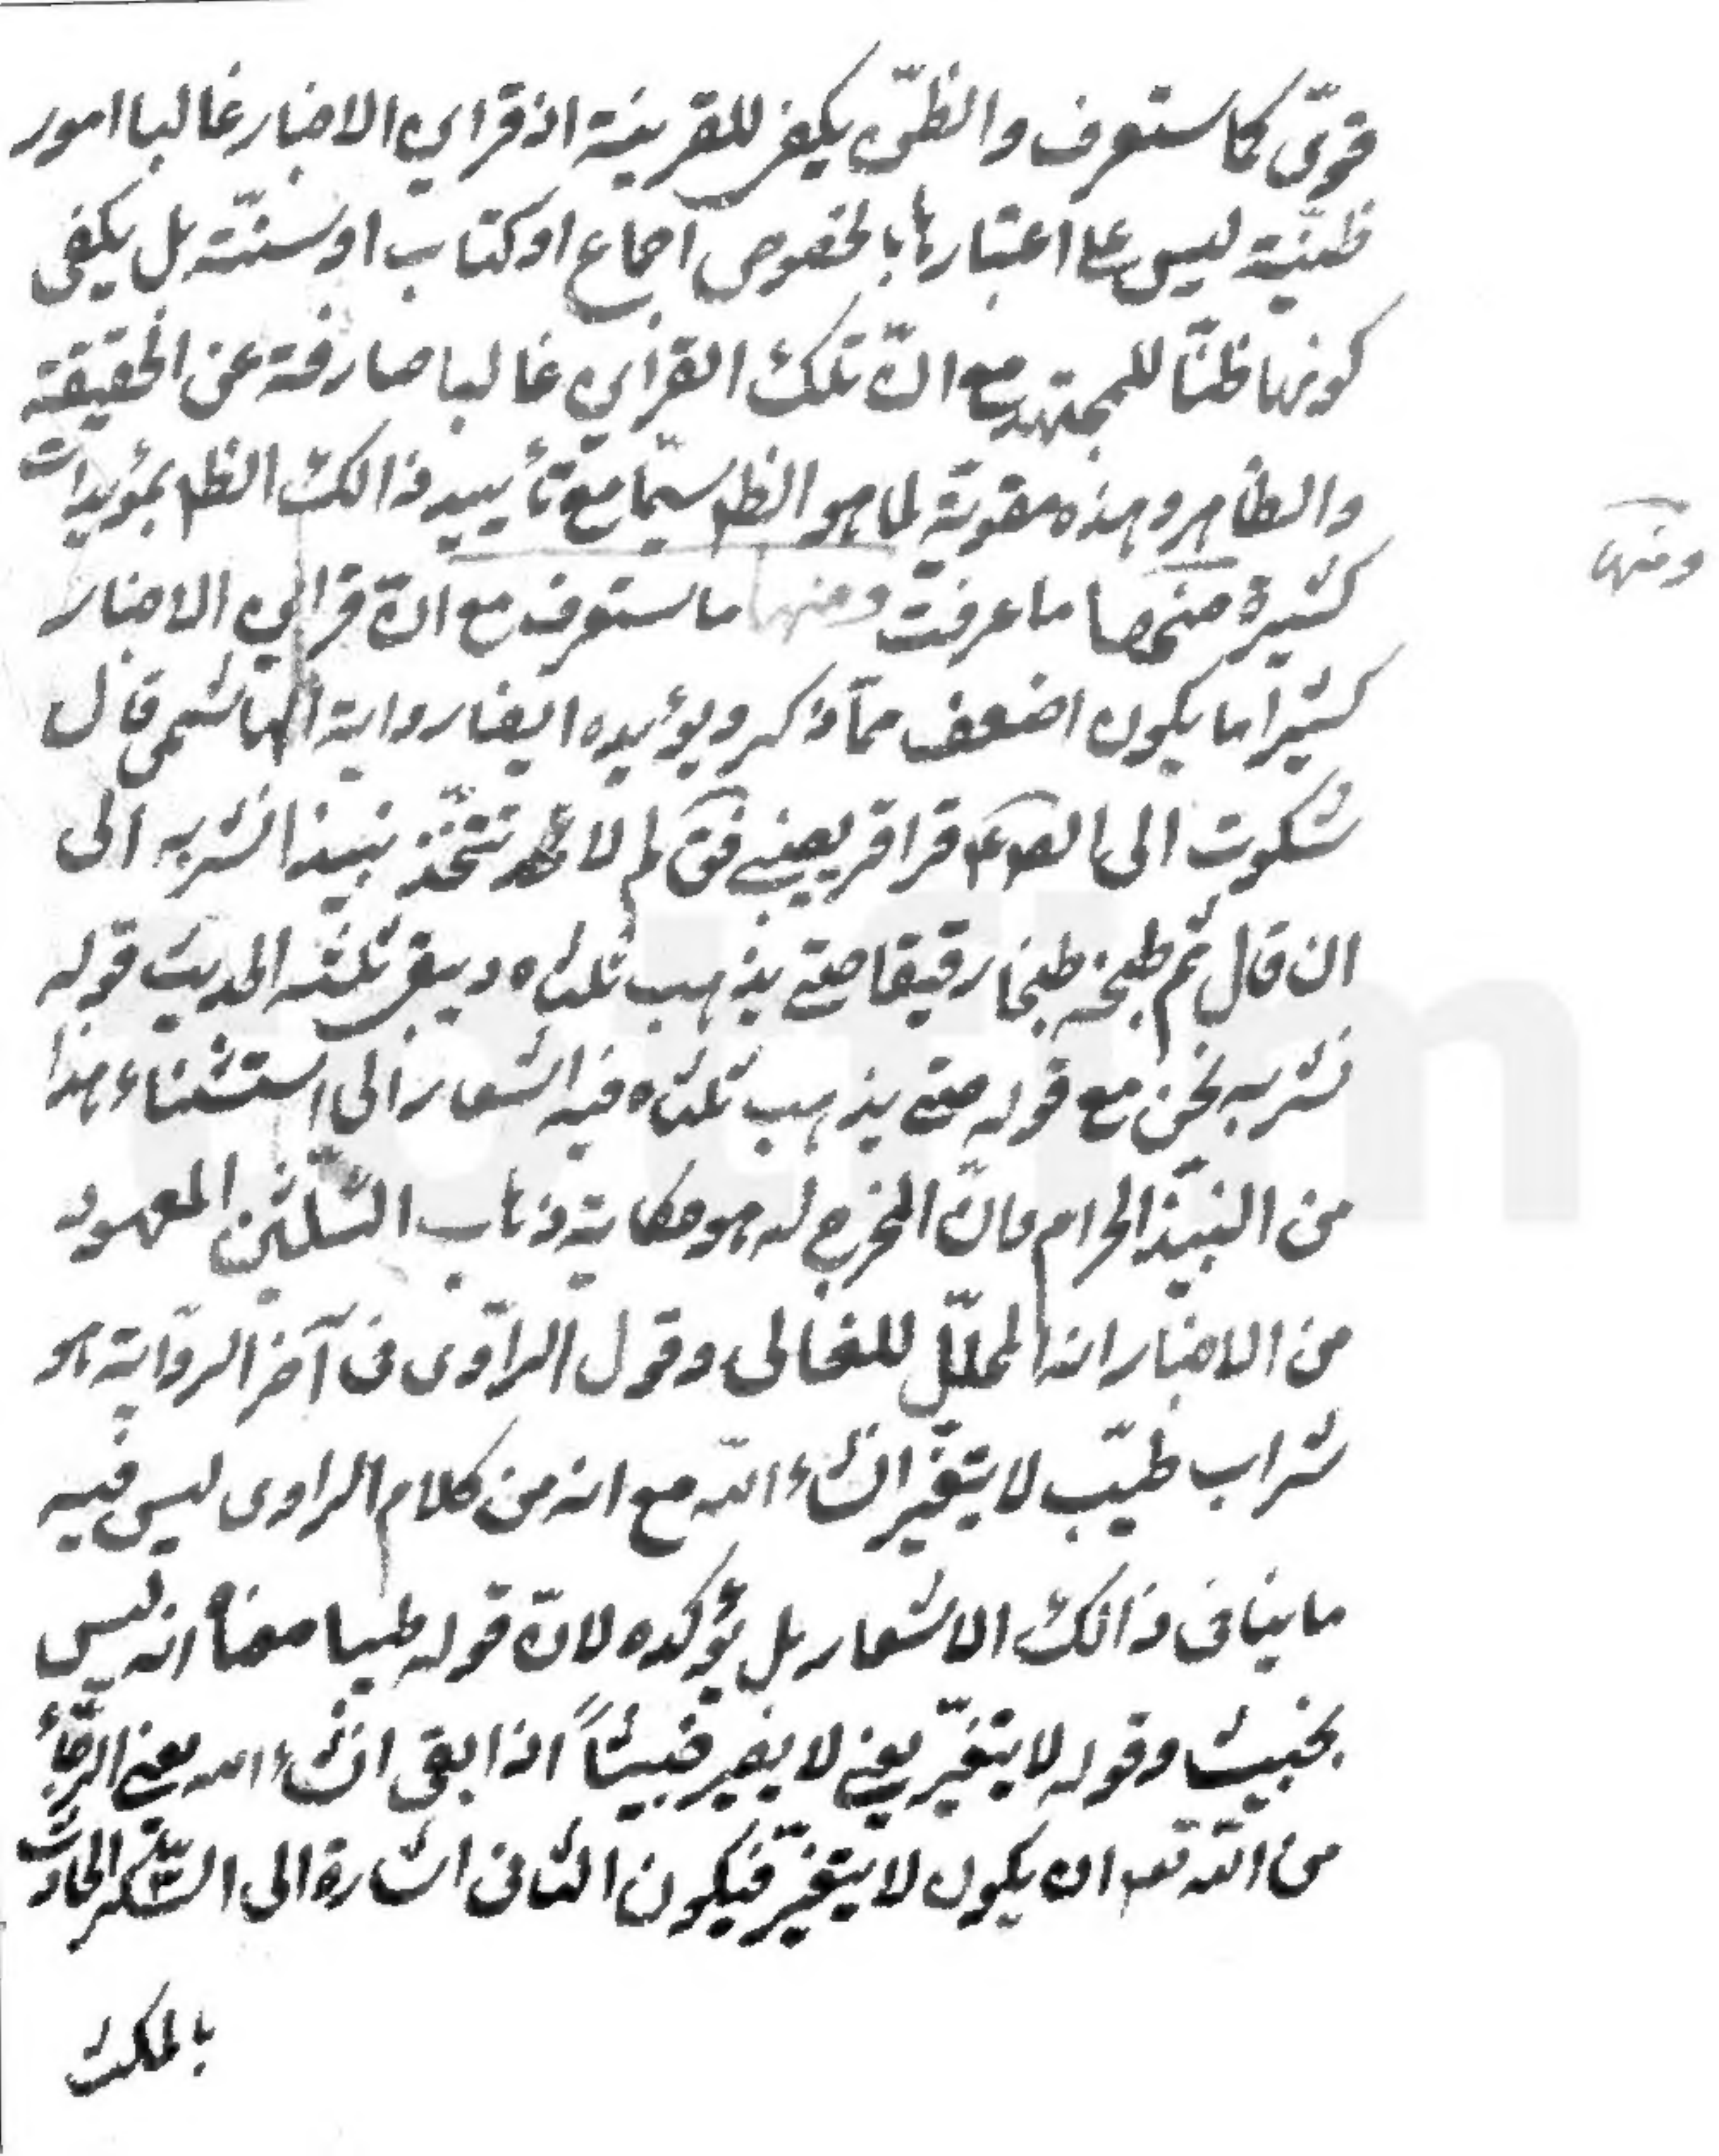 قوىّ كما ستعرف والظنّ يكفى للقرينة اذ قراين الاخبار غالبا امور
ظنّيّة ليس على اعتبارها بالخصوص اجماع او كتاب او سنّة بل يكفى
كونها ظنّا للمجتهد مع انّ تلك القراين غالبا صارفة عن الحقيقة
والظاهر وهذه مقويّة لما هو الظ سيّما مع تأييد ذالك الظ بمؤيدات
كثيرة منها ما عرفت ومنها ما ستعرف مع انّ قراين الاخبار
ومنها
كثيرا ما يكون اضعف ممّا ذكر ويؤيده ايضا رواية الهاشمى قال
شكوت الى قراقر فق لم لا تتّخذ نبيذا نشربه الى
ان قال ثم طبخه طبخا رقيقا حتى يذهب ثلثاه ويبقى ثلثه الحديث قوله
نشربه نحن مع قوله حتى يذهب ثلثاه فيه اشعار الى استثناء هذا
من النبيذ الحرام وانّ المخرج له هو حكاية ذهاب الثلثين المعهود
من الاخبار انه المحلّل للغالى وقول الراوى فى آخر الرواية هو
شراب طيّب لا يتغيّر انشاء الله مع انه من كلام الراوى ليس فيه
ما ينافى ذالك الاشعار بل يؤكده لانّ قوله طيبا معناه انه ليس
بخبيث وقوله لا يتغيّر يعنى لا يصير خبيثاً اذا بقى انشاء الله يعنى الرجاء
من الله تعه ان يكون لا يتغيّر فيكون الثانى اشارة الى السّكر الحادث
بالمكث